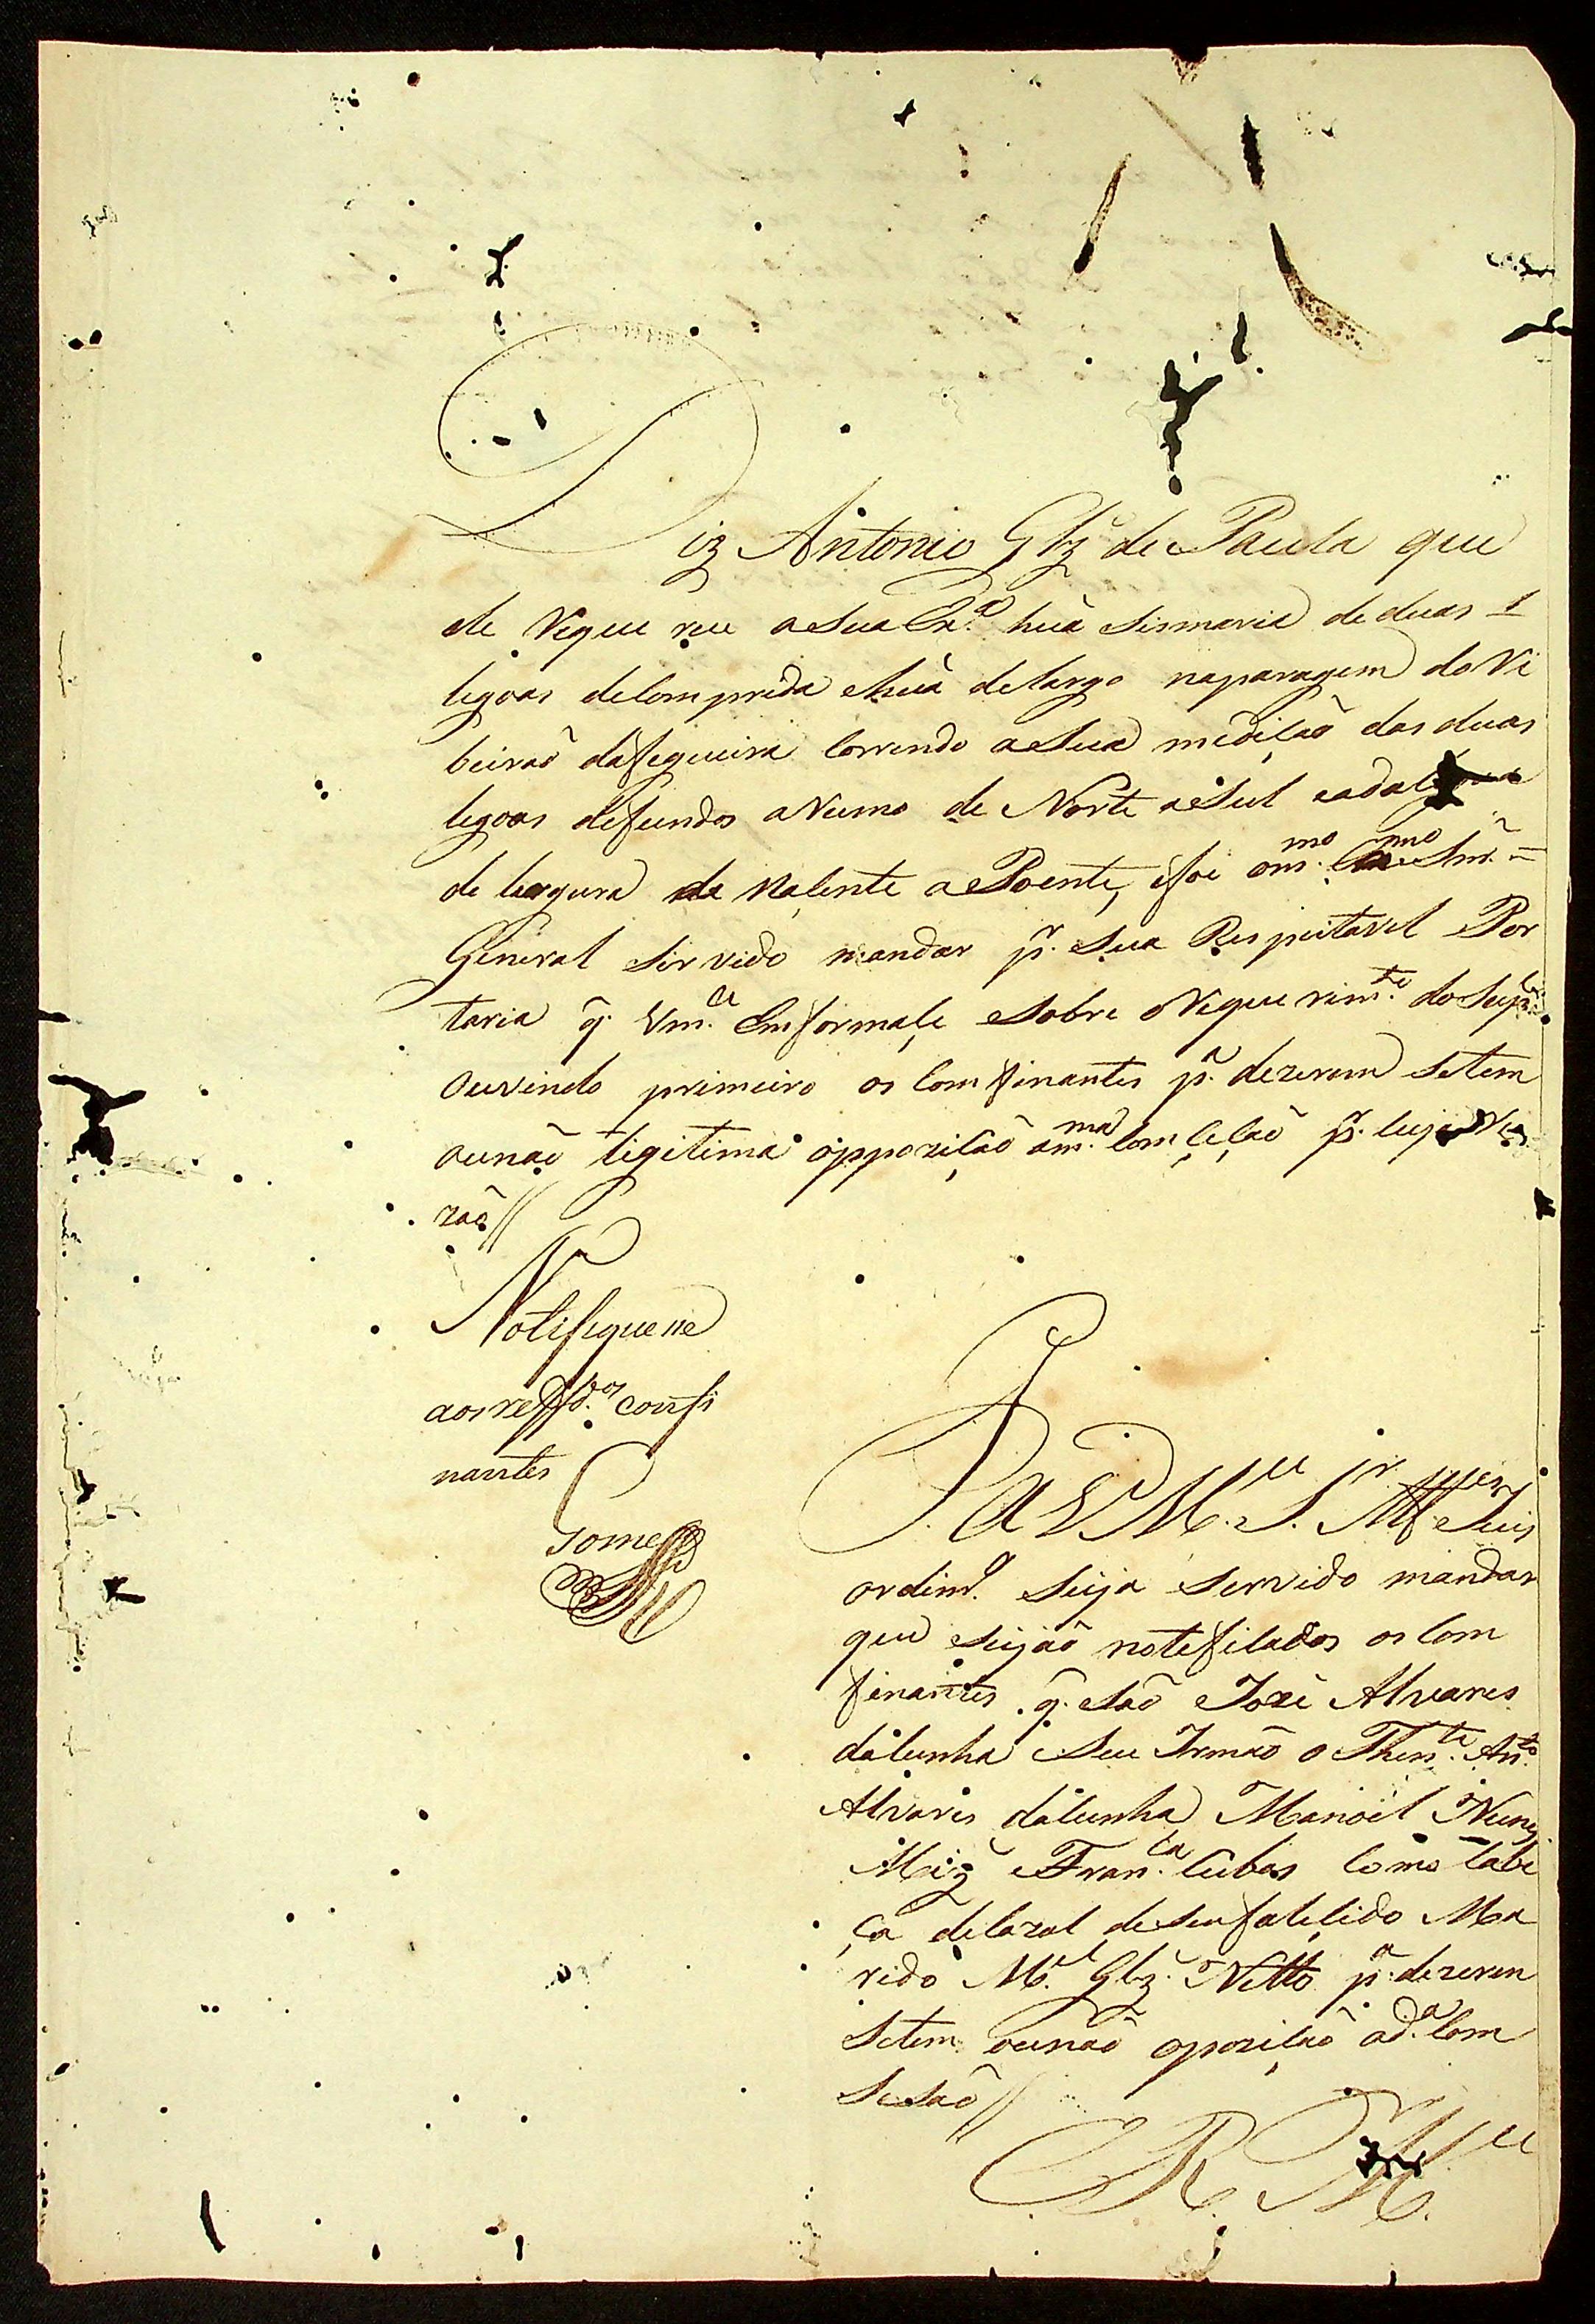 Diz Antonio Glz̃ de Paula que
de Reque reu a Sua Ex.ª hũa Sismaria de duas
legoas decomprida ehũa delargo naparagem do Ri
beiraõ dafegueira Correndo a Sua mediçaõ das duas
legoas defundos a Rumo de Norte a Sul eada
de largura de Naçente a Poente, efoi om.mo Snr̃ =
General Sirvido mandar p.r Sua Respeitavel Por
taria q̃ Vm.ce Emformaçe Sobre o Reque rim.to do Sup.e
Ouvindo primeiro os Comfinantes p.ª dezerem Setem
ounaõ ligitima oppoziçaõ am.ma Comçeçaõ p.r cuja Re
zaõ //
Notifiquese
aos reff.dos confi
nantes
Gomes
P. a VM.ce S.r Juis
ordin.o Seija Servido mandar
que Seijaõ notefiCados os Com
finantes q̃ Saõ Joze Alvares
daCunha Seu Irmaõ o Then.te An.to
Alvares daCunha Manoel Nunes
Miz̃ Fran.ca Cubas Como Cabe
ça deCazal de Seu faleçido Ma
rido M.el Glz̃ Netto p.ª dezerem
Setem ounaõ opoziçaõ ad.ª Com
SeSaõ //
E R M.ce